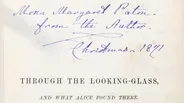 Mona Margaret Paton
from the Author.
Christmas. 1871
THROUGH THE LOOKING-GLASS,
AND WHAT ALICE FOUND THERE.